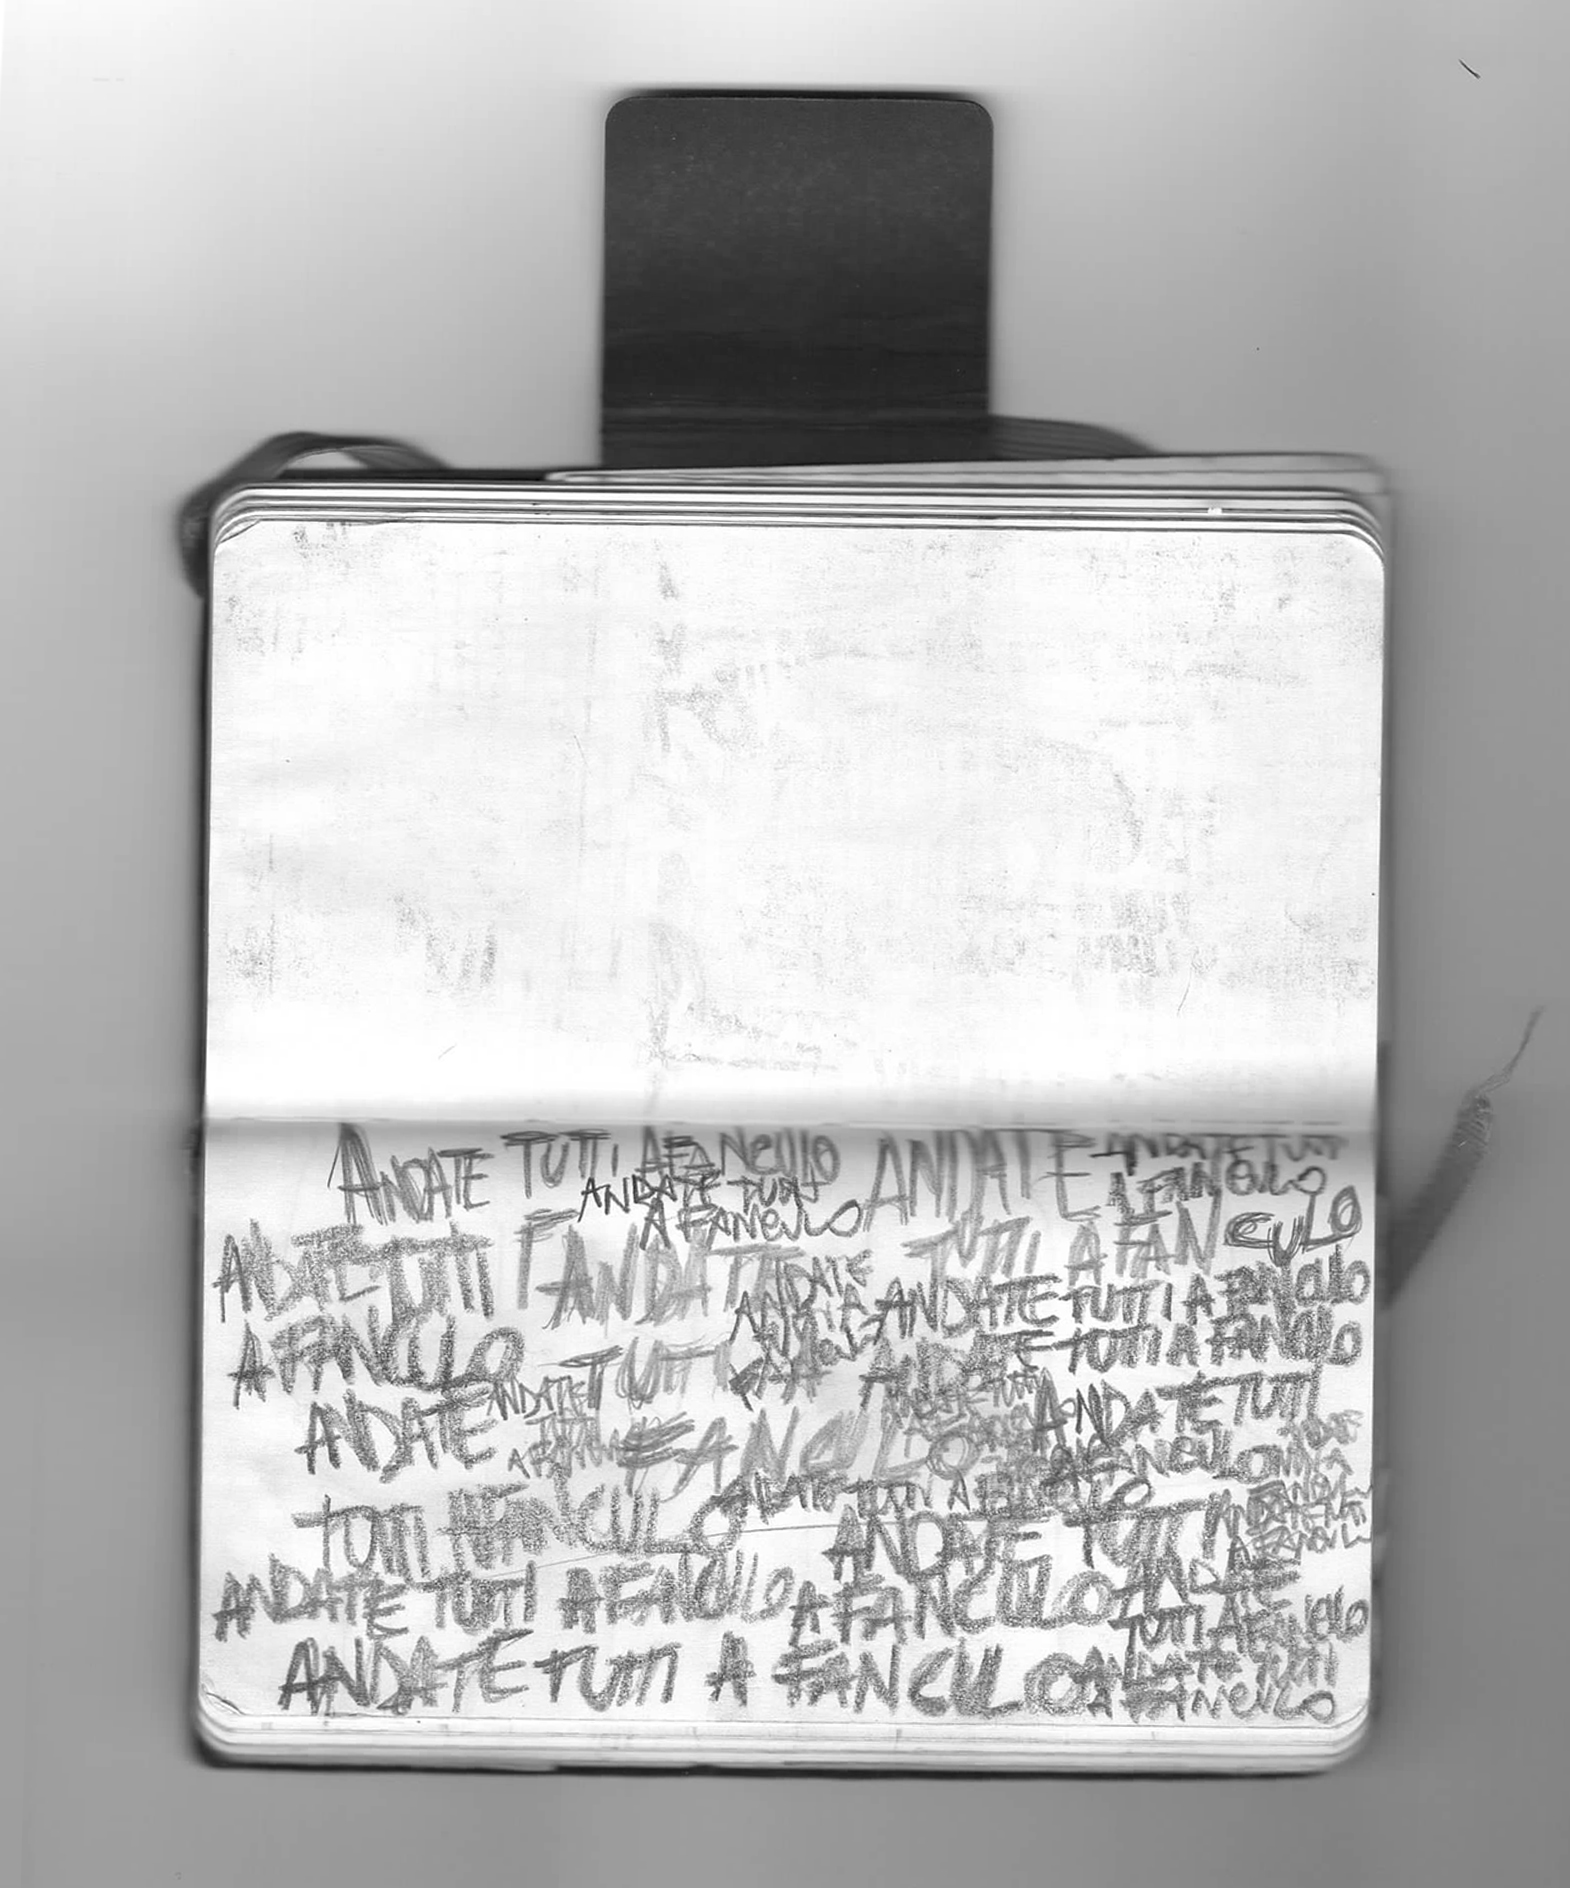 ANDATE TUTTI A FANCULO ANDATE ANDATE TUTTI
ANDATE TUTTI A FANCULO
A FANCULO CULO
ANDATE TUTTI F ANDATE TUTTI A FAN
ANDATE ANDATE TUTTI A FANCULO
A FANCULO TUTTI ANDATE TUTTI A FANCULO
ANDATE ANDATE ANDATE TUTTI
TUTTI A FANCULO FANCULO
TUTTI A FANCULO ANDATE TUTTI A FANCULO
ANDATE TUTTI ANDATE TUTTI
A FANCULO
ANDATE TUTTI A FANCULO A FANCULO ANDATE
TUTTI A FANCULO
ANDATE TUTTI A FANCULO ANDATE TUTTI
A FANCULO